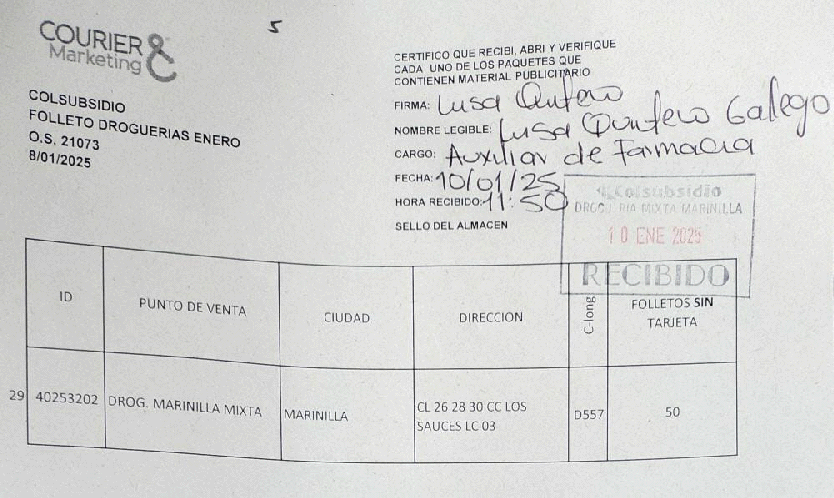 5
COURIER &
Marketing
COLSUBSIDIO
FOLLETO DROGUERIAS ENERO
O.S. 21073
8/01/2025
CERTIFICO QUE RECIBI, ABRI Y VERIFIQUE
CADA UNO DE LOS PAQUETES QUE
CONTIENEN MATERIAL PUBLICITARIO
FIRMA: Lusa Quntero
NOMBRE LEGIBLE: Lusa Quntero Gallego
CARGO: Auxiliar de Farmacia
FECHA: 10/01/25
HORA RECIBIDO: 11:50
SELLO DEL ALMACEN
Colsubsidio
DROGUERIA MIXTA MARINILLA
10 ENE 2025
RECIBIDO
ID PUNTO DE VENTA CIUDAD DIRECCION C-long FOLLETOS SIN TARJETA
29 40253202 DROG. MARINILLA MIXTA MARINILLA CL 26 28 30 CC LOS SAUCES LC 03 D557 50